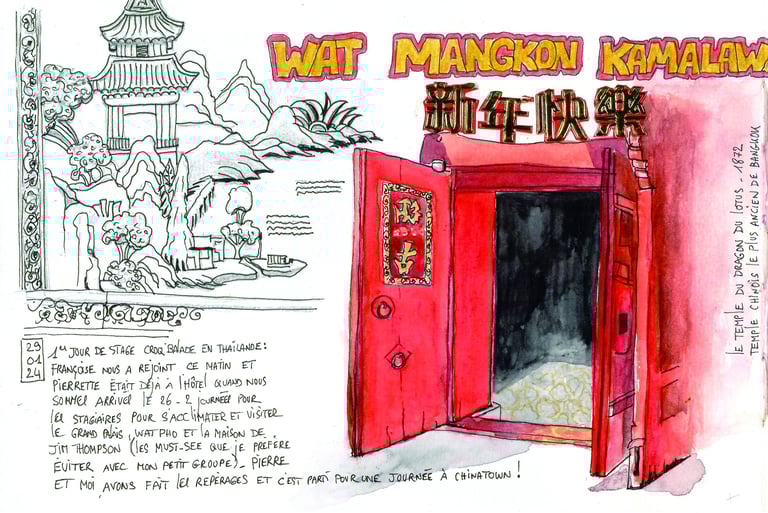 WAT MANGKON KAMALAW
新年快樂
LE TEMPLE DU DRAGON DU LOTUS - 1872
TEMPLE CHINOIS LE PLUS ANCIEN DE BANGKOK
29
01
24
1er JOUR DE STAGE CROQ'BALADE EN THAÏLANDE:
FRANÇOISE NOUS A REJOINT CE MATIN ET
PIERRETTE ÉTAIT DÉJÀ À L'HÔTEL QUAND NOUS
SOMMES ARRIVÉS LE 26 - 2 JOURNÉES POUR
LES STAGIAIRES POUR S'ACCLIMATER ET VISITER
LE GRAND PALAIS, WAT PHO ET LA MAISON DE
JIM THOMPSON (LES MUST-SEE QUE JE PRÉFÈRE
ÉVITER AVEC MON PETIT GROUPE)_ PIERRE
ET MOI AVONS FAIT LES REPÉRAGES ET C'EST PARTI POUR UNE JOURNÉE À CHINATOWN !